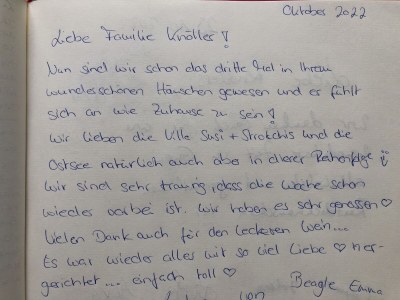 Oktober 2022
Liebe Familie Knöller!
Nun sind wir schon das dritte Mal in Ihrem
wunderschönen Häuschen gewesen und es fühlt
sich an wie Zuhause zu sein!
Wir lieben die Villa Susi + Strolchis und die
Ostsee natürlich auch aber in dieser Reihenfolge
Wir sind sehr traurig, dass die Woche schon
wieder vorbei ist. Wir haben es sehr genossen ♡
Vielen Dank auch für den leckeren Wein...
Es war wieder alles mit so viel Liebe ♡ her-
gerichtet... einfach toll ♡
Beagle Emma
von